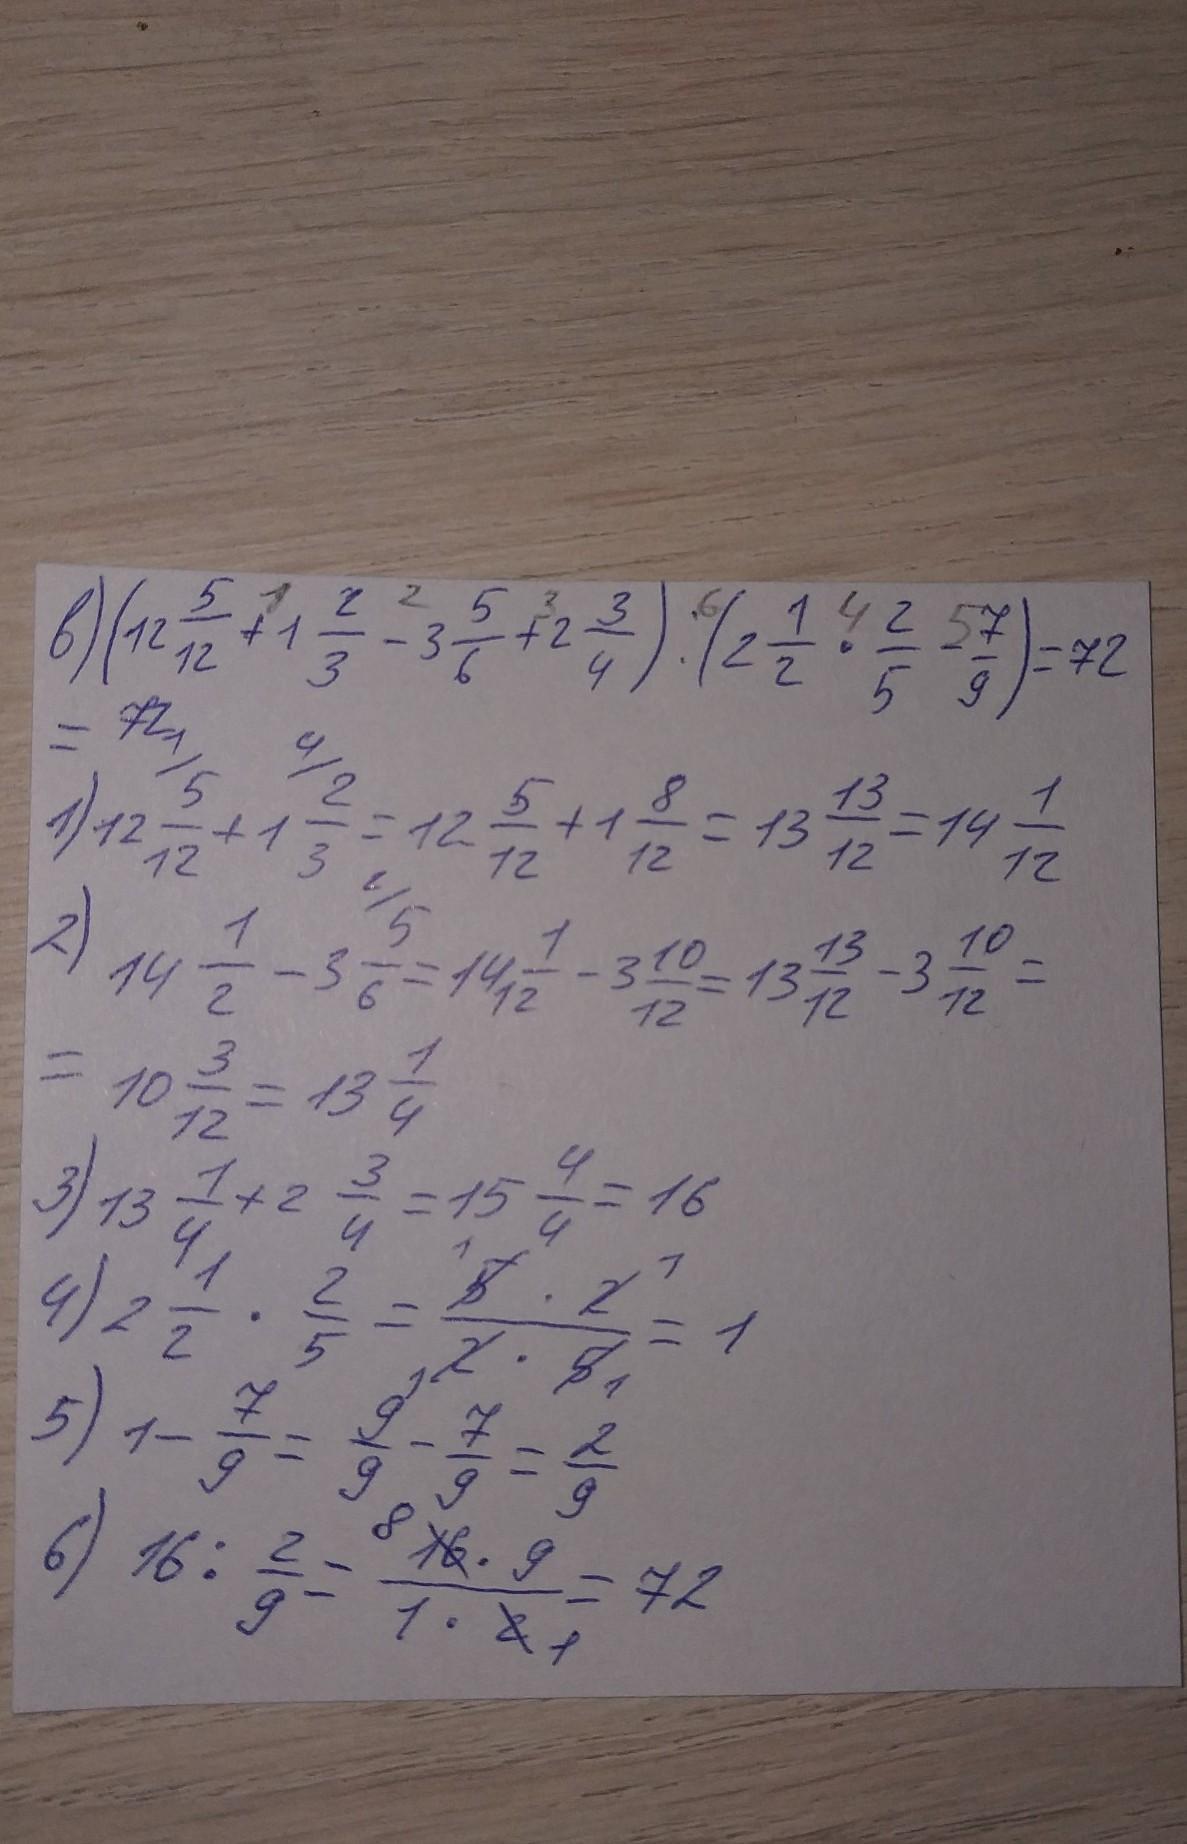 в) (12 5/12 + 1 2/3 - 3 5/6 + 2 3/4) : (2 1/2 · 2/5 - 7/9) = 72
= 72
1) 12 5/12 + 1 2/3 = 12 5/12 + 1 8/12 = 13 13/12 = 14 1/12
2) 14 1/2 - 3 5/6 = 14 1/12 - 3 10/12 = 13 13/12 - 3 10/12 =
= 10 3/12 = 13 1/4
3) 13 1/4 + 2 3/4 = 15 4/4 = 16
4) 2 1/2 · 2/5 = 5 · 2 / 2 · 5 = 1
5) 1 - 7/9 = 9/9 - 7/9 = 2/9
6) 16 : 2/9 = 16 · 9 / 1 · 2 = 72